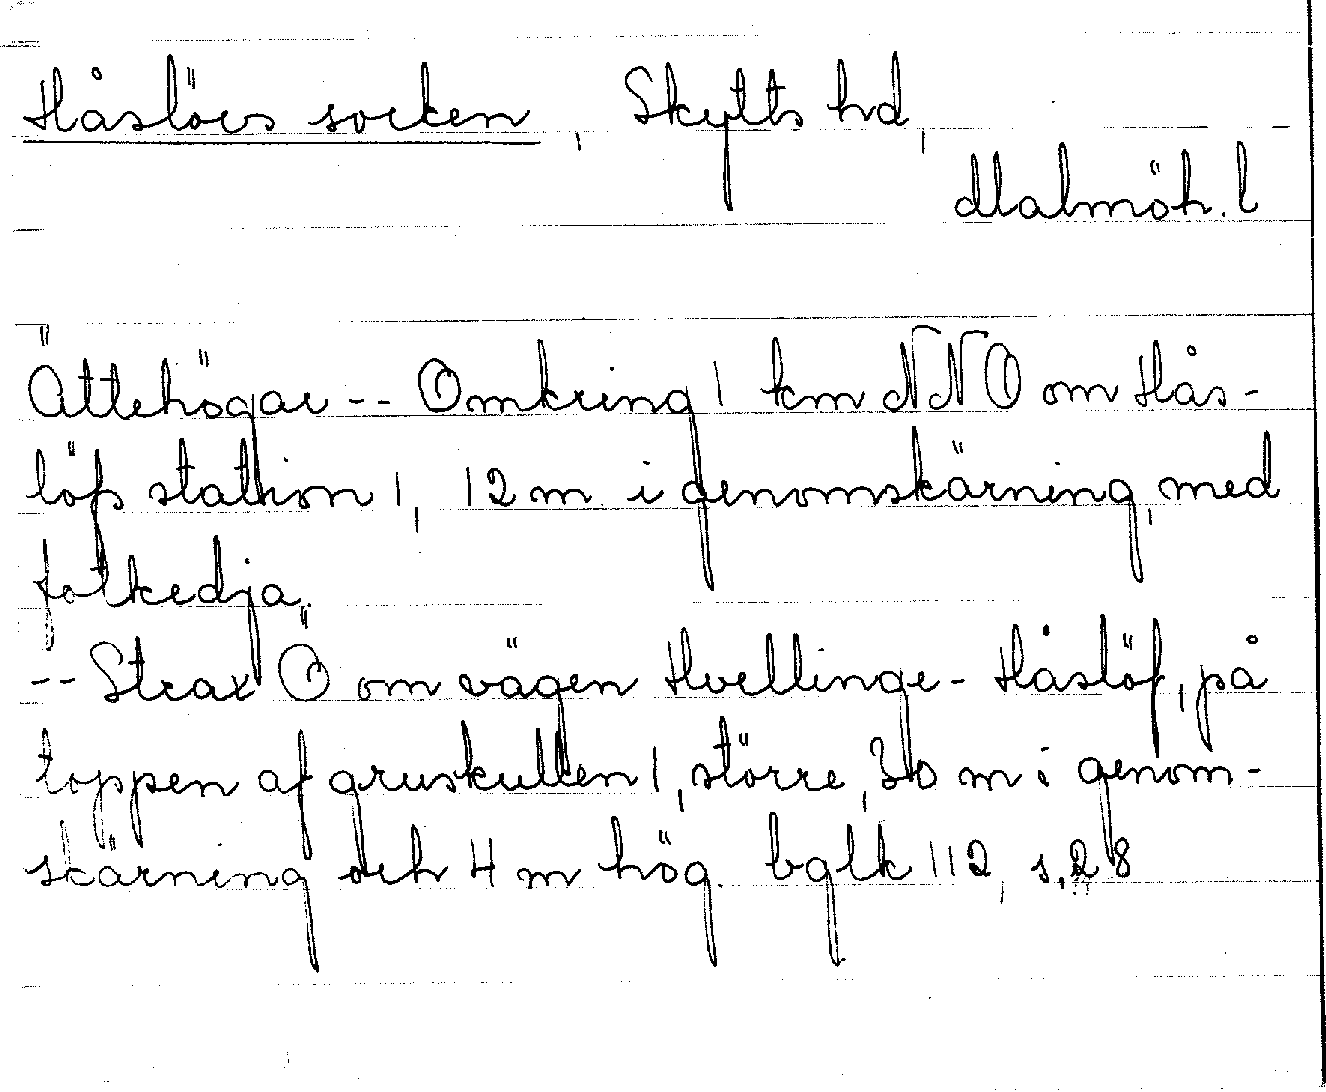 Håslövs socken, Skytts hd,
Malmöh. l
Ättehögar -- Omkring 1 km NNO om Hås-
löfs station 1, 12 m i genomskärning, med
fotkedja.
-- Strax Ö om vägen Hvellinge - Håslöf, på
toppen af gruskullen 1, större, 30 m i genom-
skärning och 4 m hög. bglk 112, s, 28